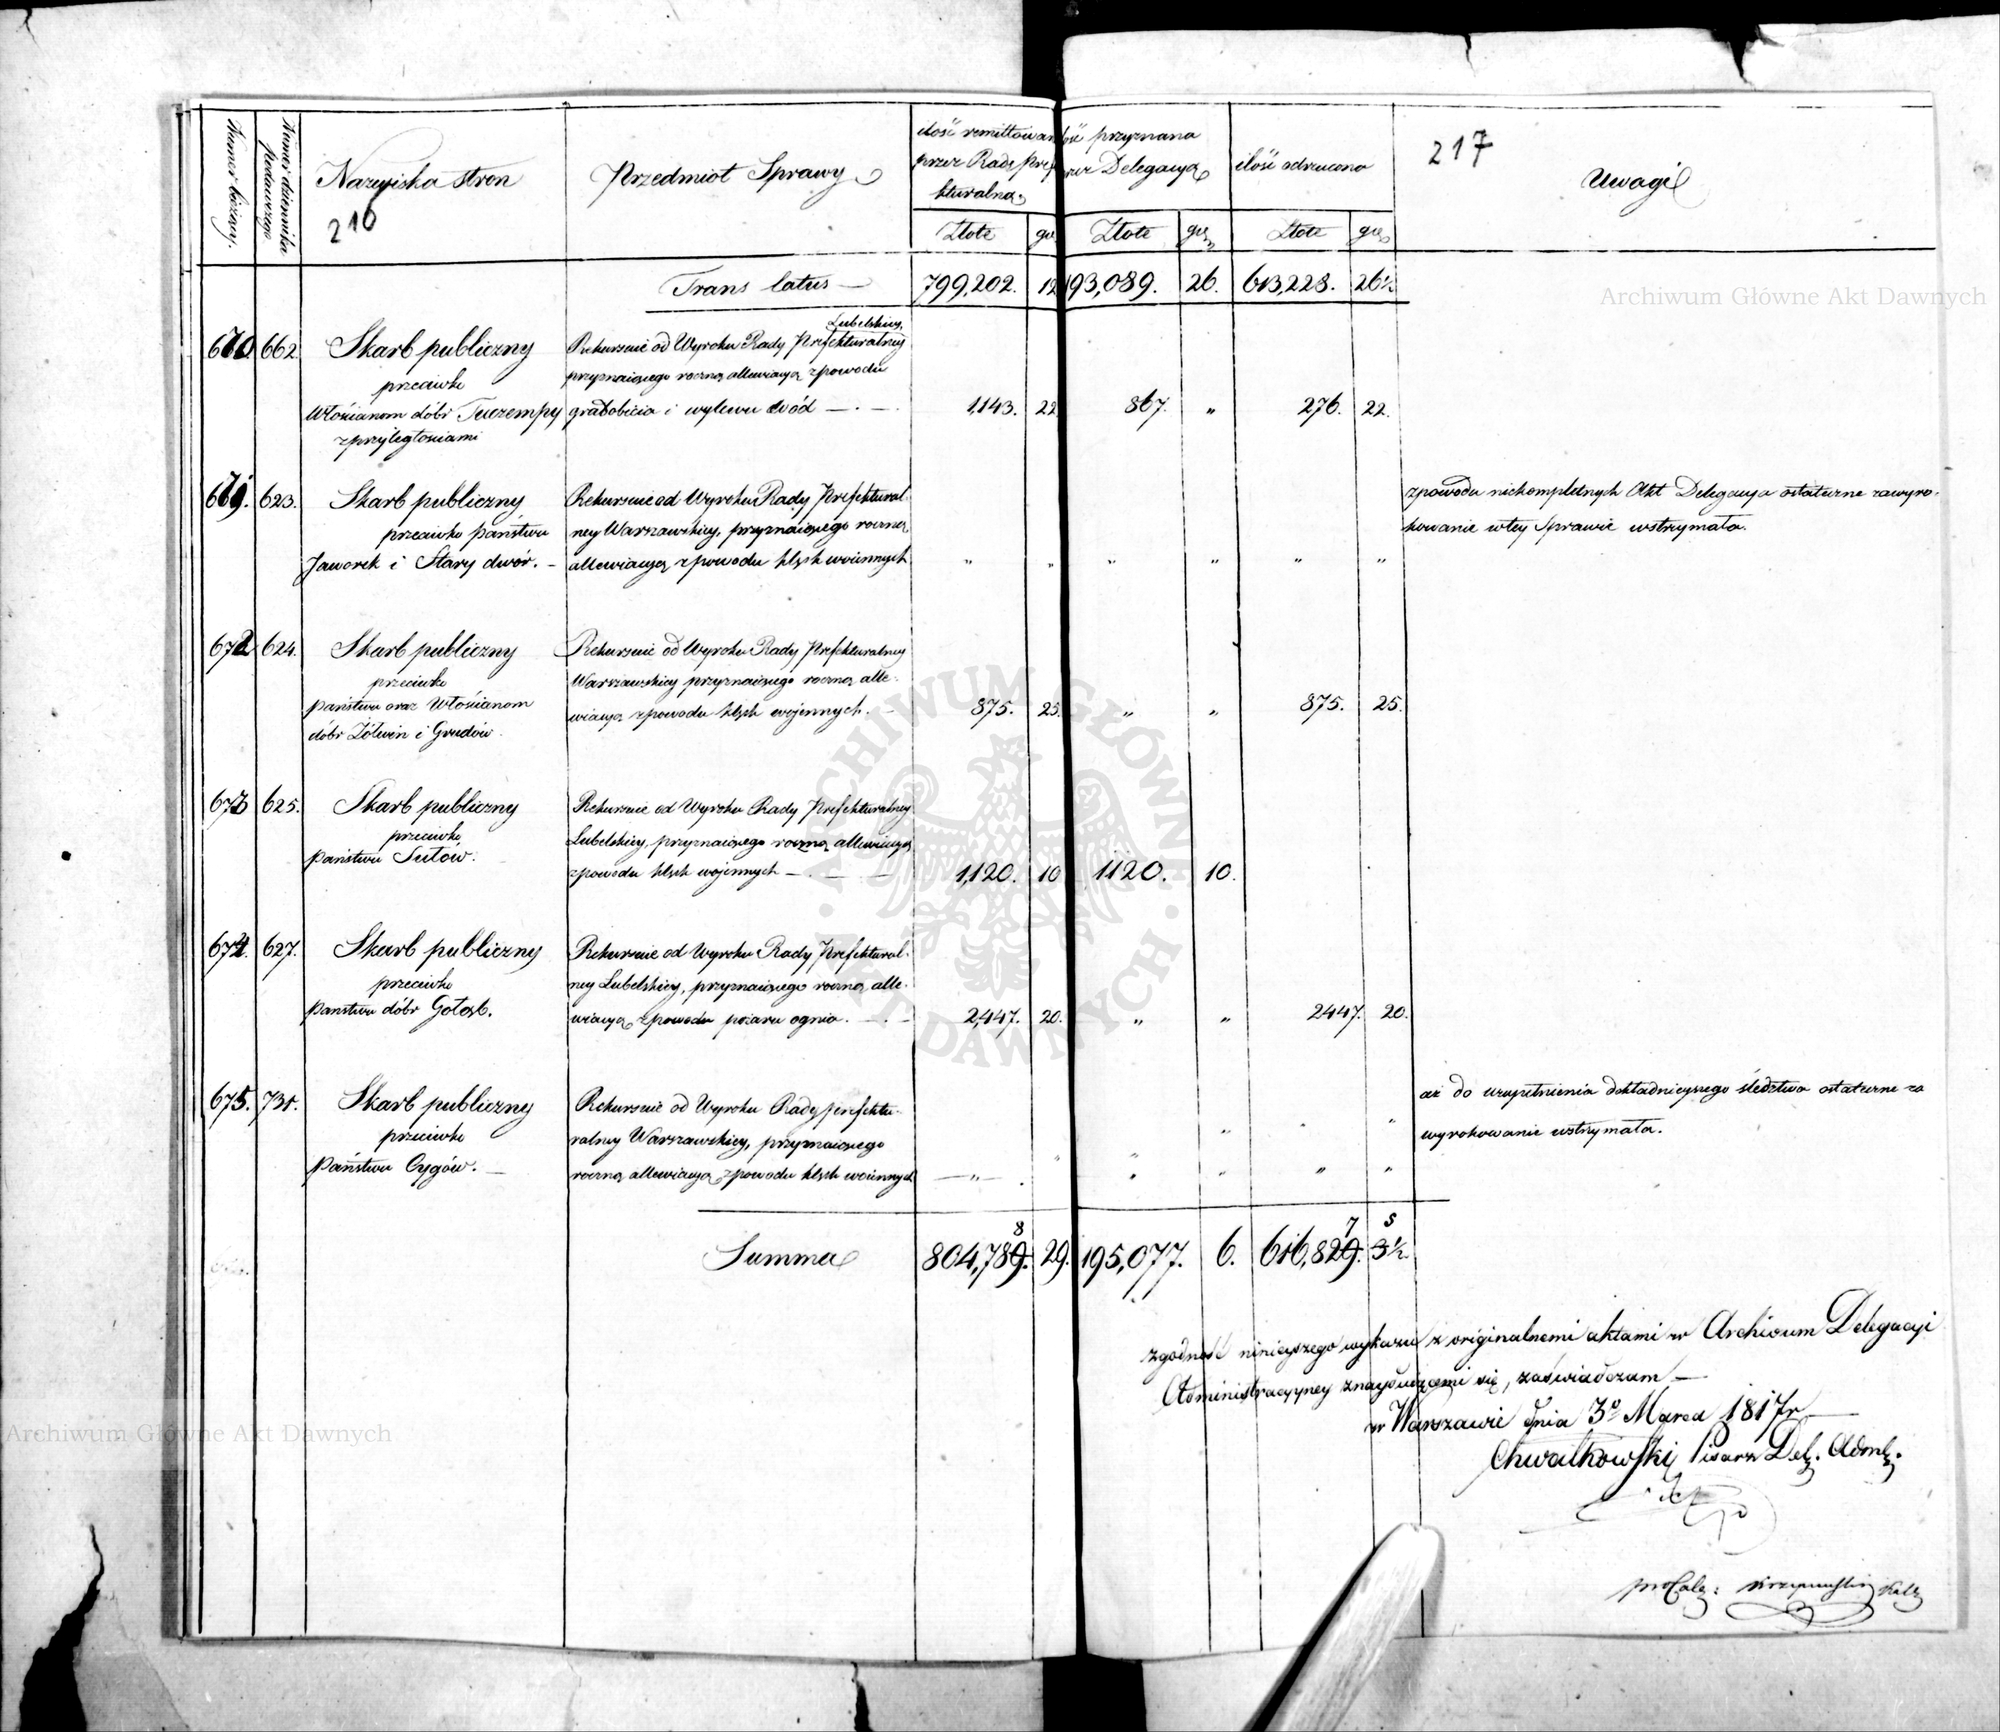 Numer bieżący.
Numer dziennika podawczego
Nazwiska stron
210
Przedmiot Sprawy
ilość remittowana
przez Radę Prefe
kturalną
Złote
gr.
ilość przyznana
przez Delegacyą
Złote
gr.
ilość odrzucona
Złote
gr.
217
Uwagi
Trans latus — 799,202. 12 193,089. 26. 613,228. 26½
670 662. Skarb publiczny
przeciwko
Włościanom dóbr Tuczempy
z przyległościami
Lubelskiey
Rekursuie od Wyroku Rady Prefekturalney
przyznaiącego roczną allewiacyą z powodu
gradobicia i wylewu wód — . — 1,143. 22 867. „ 276. 22.
671. 623. Skarb publiczny
przeciwko Państwu
Jaworek i Stary dwór. –
Rekursuie od Wyroku Rady Prefektural-
ney Warszawskiey, przyznaiącego roczną
allewiacyą z powodu klęsk woiennych „ „ „ „ „ „
z powodu niekompletnych Akt Delegacya ostateczne zawyro-
kowanie w tey Sprawie wstrzymała.
672 624. Skarb publiczny
przeciwko
Państwu oraz Włościanom
dóbr Żółwin i Grudów.
Rekursuie od Wyroku Rady Prefekturalney
Warszawskiey przyznaiącego roczną alle-
wiacyą z powodu klęsk wojennych. — 875. 25. „ „ 875. 25.
673 625. Skarb publiczny
przeciwko
Państwu Sutów.
Rekursuie od Wyroku Rady Prefekturalney
Lubelskiey, przyznaiącego roczną allewiacyą
z powodu klęsk wojennych — . — — 1,120. 10 1120. 10.
674. 627. Skarb publiczny
przeciwko
Państwu dóbr Gołąb.
Rekursuie od Wyroku Rady Prefektural-
ney Lubelskiey, przyznaiącego roczną alle-
wiacyą z powodu pożaru ognia. — . — 2,447. 20. „ „ 2447. 20.
675. 731. Skarb publiczny
przeciwko
Państwu Cygów. —
Rekursuie od Wyroku Rady Prefektu-
ralney Warszawskiey, przyznaiącego
roczną allewiacyą z powodu klęsk woiennych — „ — . „ „ „ „
aż do uzupełnienia dokładnieyszego śledztwa ostateczne za
wyrokowanie wstrzymała.
8 7 5
Summa 804,789. 29. 195,077. 6. 616,829. 3½
zgodność ninieyszego wykazu z originalnemi aktami w Archivum Delegacyi
Administracyyney znayduiącemi się, zaświadczam —
w Warszawie dnia 3º Marca 1817 r —
Chwalkowski Pisarz Del. Adm.
Archiwum Główne Akt Dawnych
Archiwum Główne Akt Dawnych
ARCHIWUM GŁÓWNE
AKT DAWNYCH